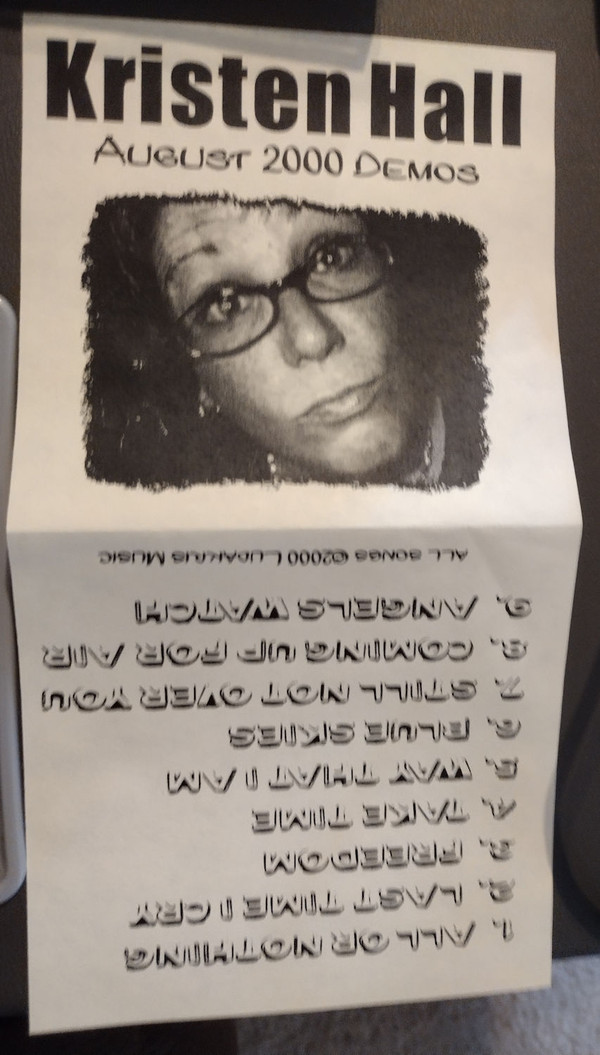 Kristen Hall
August 2000 Demos
1. ALL OR NOTHING
2. LAST TIME I CRY
3. FREEDOM
4. TAKE TIME
5. WAY THAT I AM
6. BLUE SKIES
7. STILL NOT OVER YOU
8. COMING UP FOR AIR
9. ANGELS WATCH
ALL SONGS ©2000 LUDAKRIS MUSIC